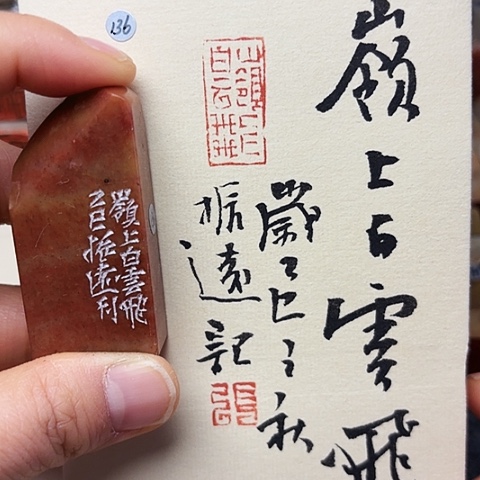 136
嶺上白雲飛
歲乙巳之秋
振遠記
嶺上白雲飛
乙巳振遠刊
嶺上
白云飛